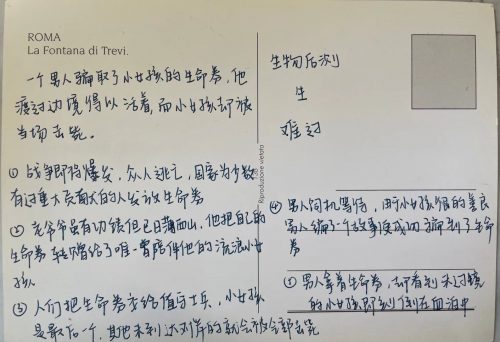 ROMA
La Fontana di Trevi.
一个男人骗取了小女孩的生命券,他
渡过边境得以活着,而小女孩却被
当场击毙。
① 战争即将爆发,众人逃亡,国家为少数
有过重大贡献的人发放生命券
② 老爷爷虽有功绩但已日薄西山,他把自己的
生命券转赠给了唯一曾陪伴他的流浪小女
孩
③ 人们把生命券交给值守士兵,小女孩
是最后一个,其他未到达对岸的就会被全部击毙
Riproduzione vietata
生物后测
生
难过
④ 男人伺机等待,由于小女孩很的善良
男人编了个故事便成功骗到了生命
券
⑤ 男人拿着生命券,却看到未过线
的小女孩即刻倒在血泊中